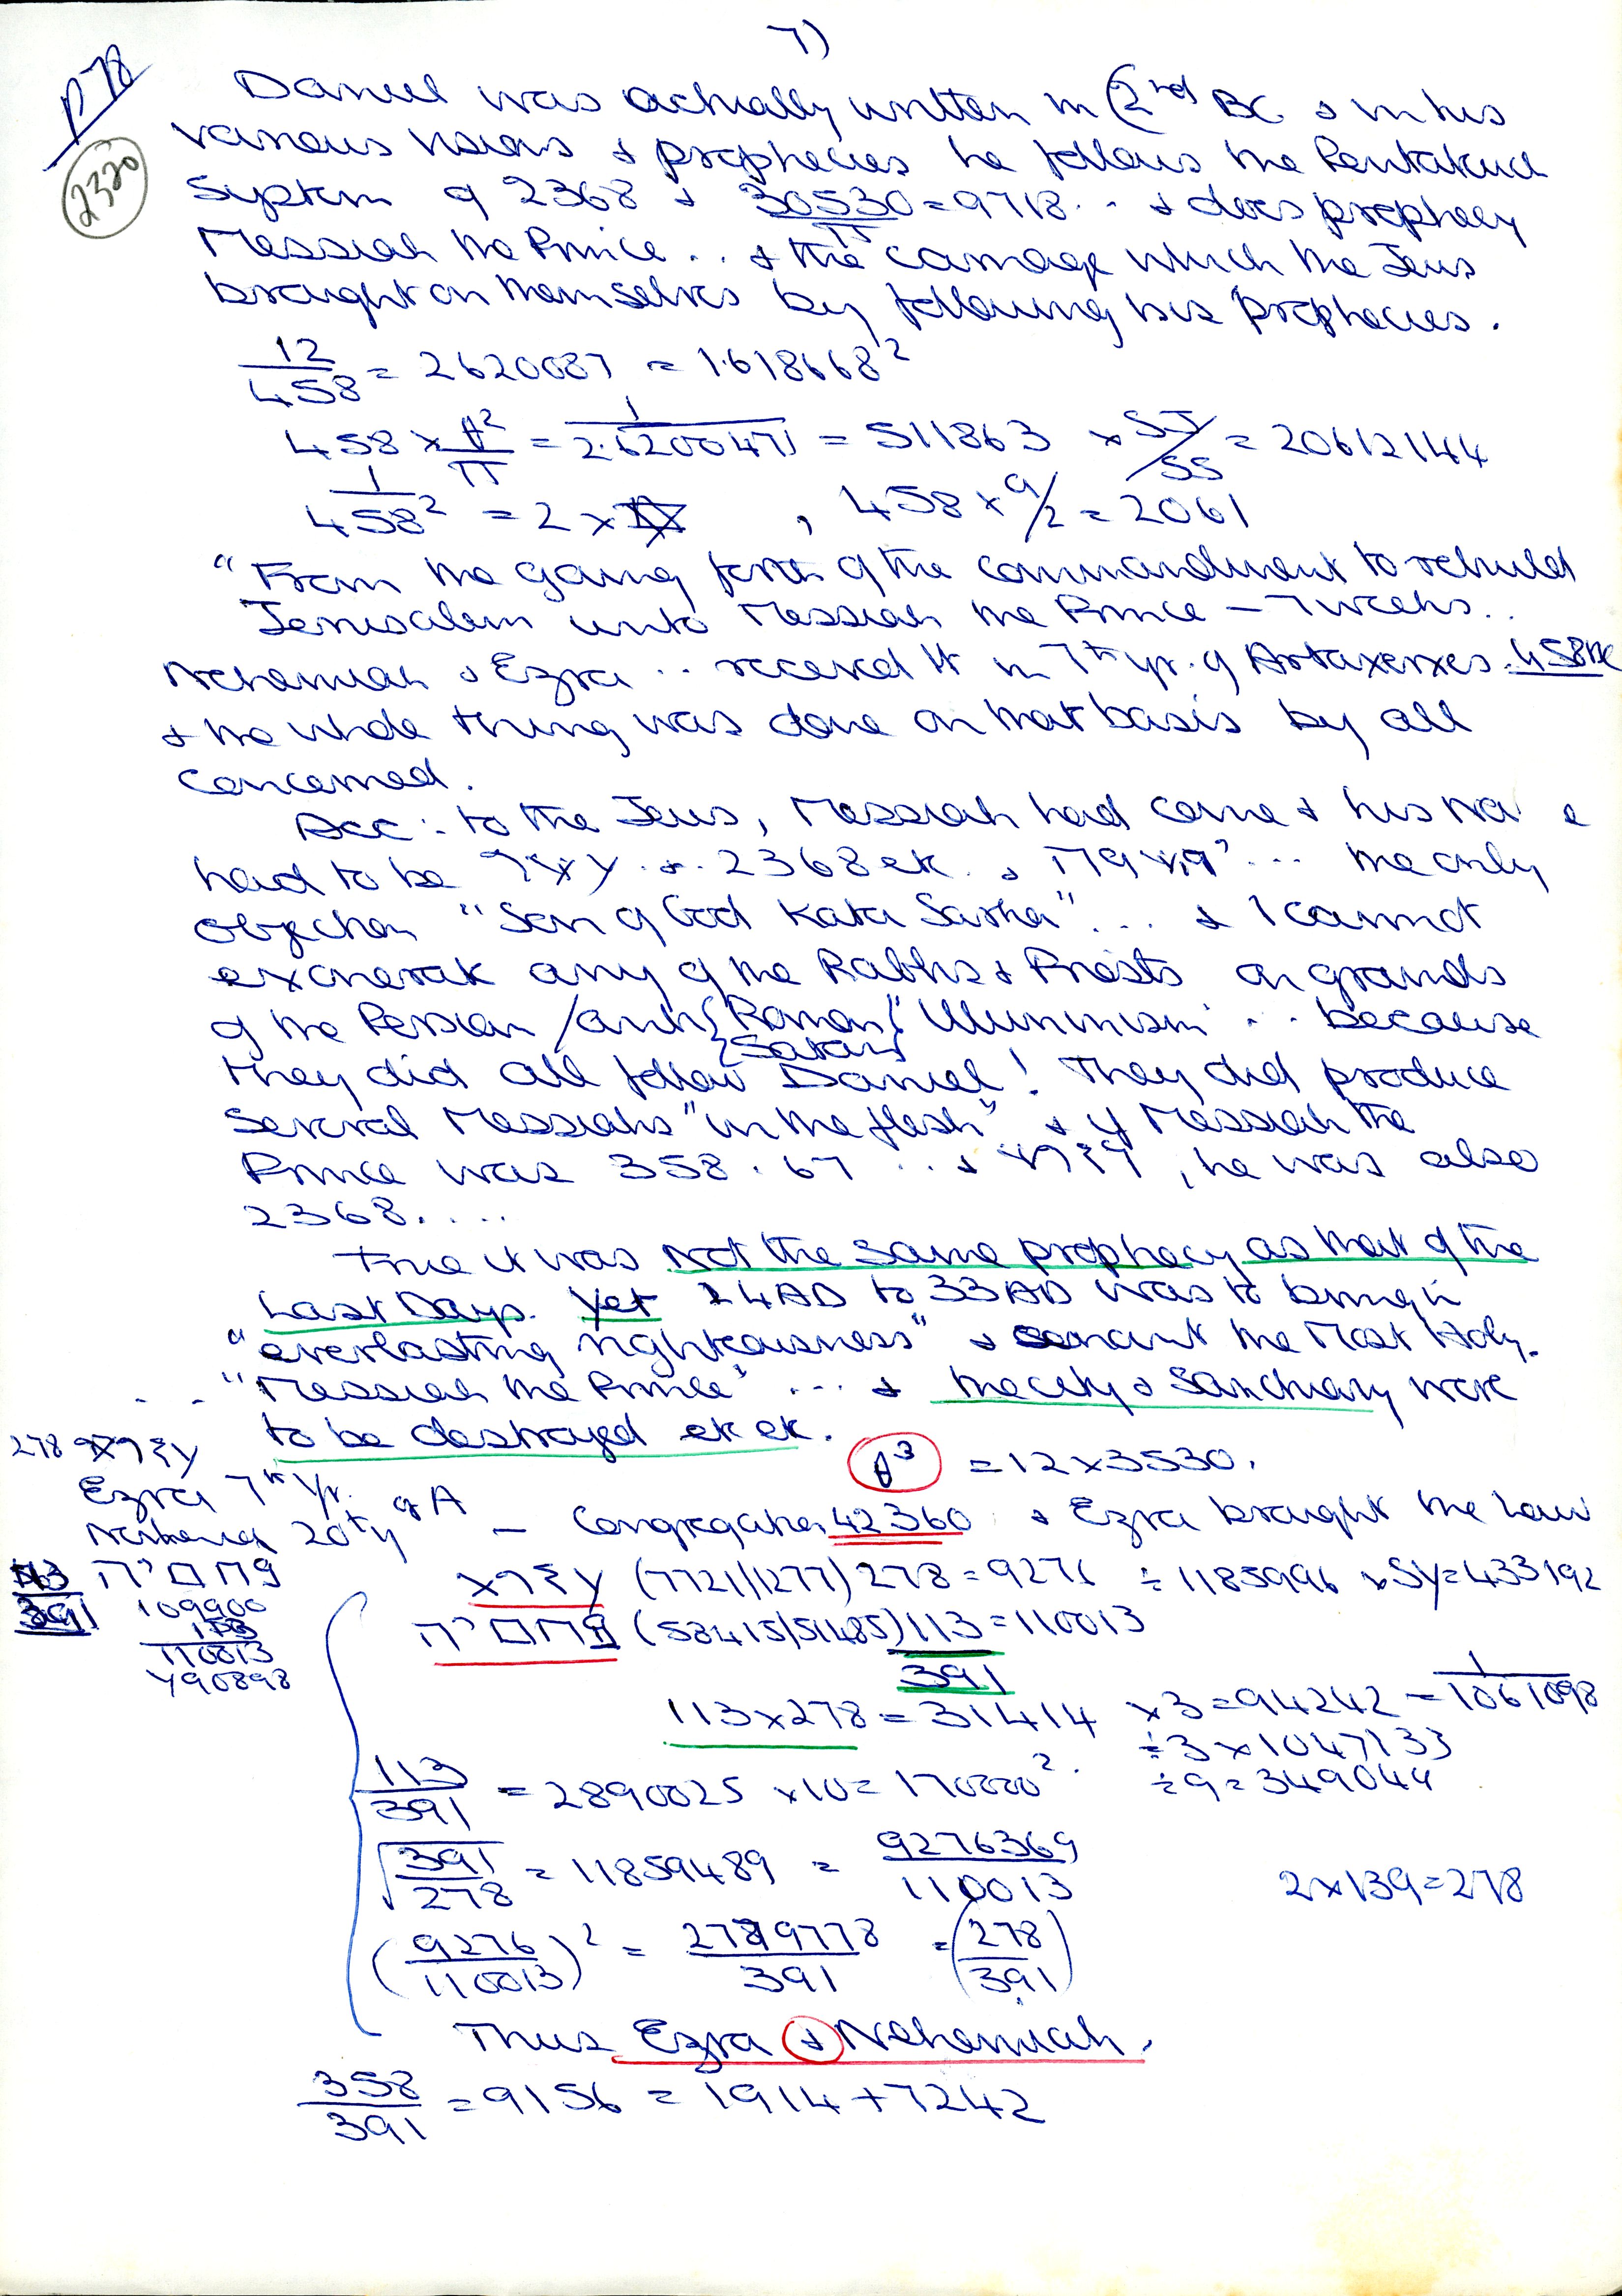 7)
p 78
2320
Daniel was actually written in C2nd BC & in his
various visions & prophecies he follows the Pentateuch
System of 2368 & 30530/π = 9718 . . & does prophecy
Messiah the Prince . . & the carnage which the Jews
brought on themselves by following his prophecies.
12/458 = 2620087 = 1.618668²
458 × /π = 1/2.6200471 = 511863 × SJ/SS = 20612144
1/458² = 2 × ✡ , 458 × 9/2 = 2061
"From the going forth of the commandment to rebuild
Jerusalem unto Messiah the Prince – 7 weeks . .
Nehemiah & Ezra . . received it in 7th yr. of Artaxerxes . 458 BC
& the whole thing was done on that basis by all
concerned.
Acc: to the Jews, Messiah had come & his
had to be . & . 2368 etc. & . . . the only
objection "Son of God Kata Sarka" . . . & I cannot
exonerate any of the Rabbis & Priests on grounds
of the Persian / anti { Roman } Illuminism . . . because
{ Satan }
they did all follow Daniel! They did produce
several Messiahs "in the flesh" & if Messiah the
Prince was 358 . 67 . . . & , he was also
2368 . . . .
True it was not the same prophecy as that of the
Last Days. Yet 24AD to 33AD was to bring in
"everlasting righteousness" & anoint the Most Holy.
. . "Messiah the Prince" . . . & the city & Sanctuary were
to be destroyed etc etc.
278
= 12 × 3530.
Ezra 7th Yr.
Nehemiah 20th y of A – Congregation 42360 & Ezra brought the Law
(7721|1277) 278 = 9276 ÷ 1185996 × SY = 433192
113
391
109900
113
110013
490898
(58415|51485) 113 = 110013
391
113 × 278 = 31414 × 3 = 94242 = 1/1061098
÷ 3 × 1047133
÷ 9 = 349044
113/391 = 2890025 × 10 = 170000².
√391/278 = 11859489 = 9276369/110013
2 × 139 = 278
(9276/110013)² = 2789778/391 = (278/391)
Thus Ezra & Nehemiah.
358/391 = 9156 = 1914 + 7242